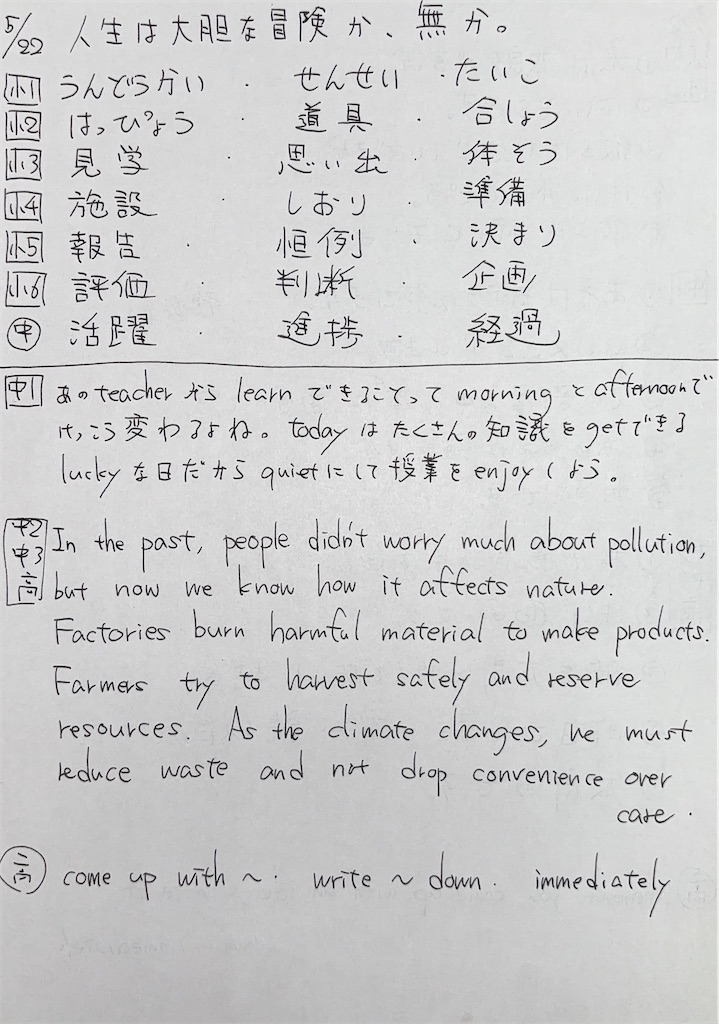 5/22 人生は大胆な冒険か、無か。
小1 うんどうかい ・ せんせい ・たいこ
小2 はっぴょう ・ 道具 ・ 合しょう
小3 見学 ・ 思い出 ・ 体そう
小4 施設 ・ しおり ・ 準備
小5 報告 ・ 恒例 ・ 決まり
小6 評価 ・ 判断 ・ 企画
中 活躍 ・ 進捗 ・ 経過
中1 あのteacherから learn できることって morning と afternoonで
けっこう変わるよね。todayはたくさんの知識をgetできる
luckyな日だから quietにして授業をenjoyしよう。
中2 In the past, people didn't worry much about pollution,
中3
高 but now we know how it affects nature.
Factories burn harmful material to make products.
Farmers try to harvest safely and reserve
resources. As the climate changes, we must
reduce waste and not drop convenience over
care.
高 come up with ~. write ~ down. immediately